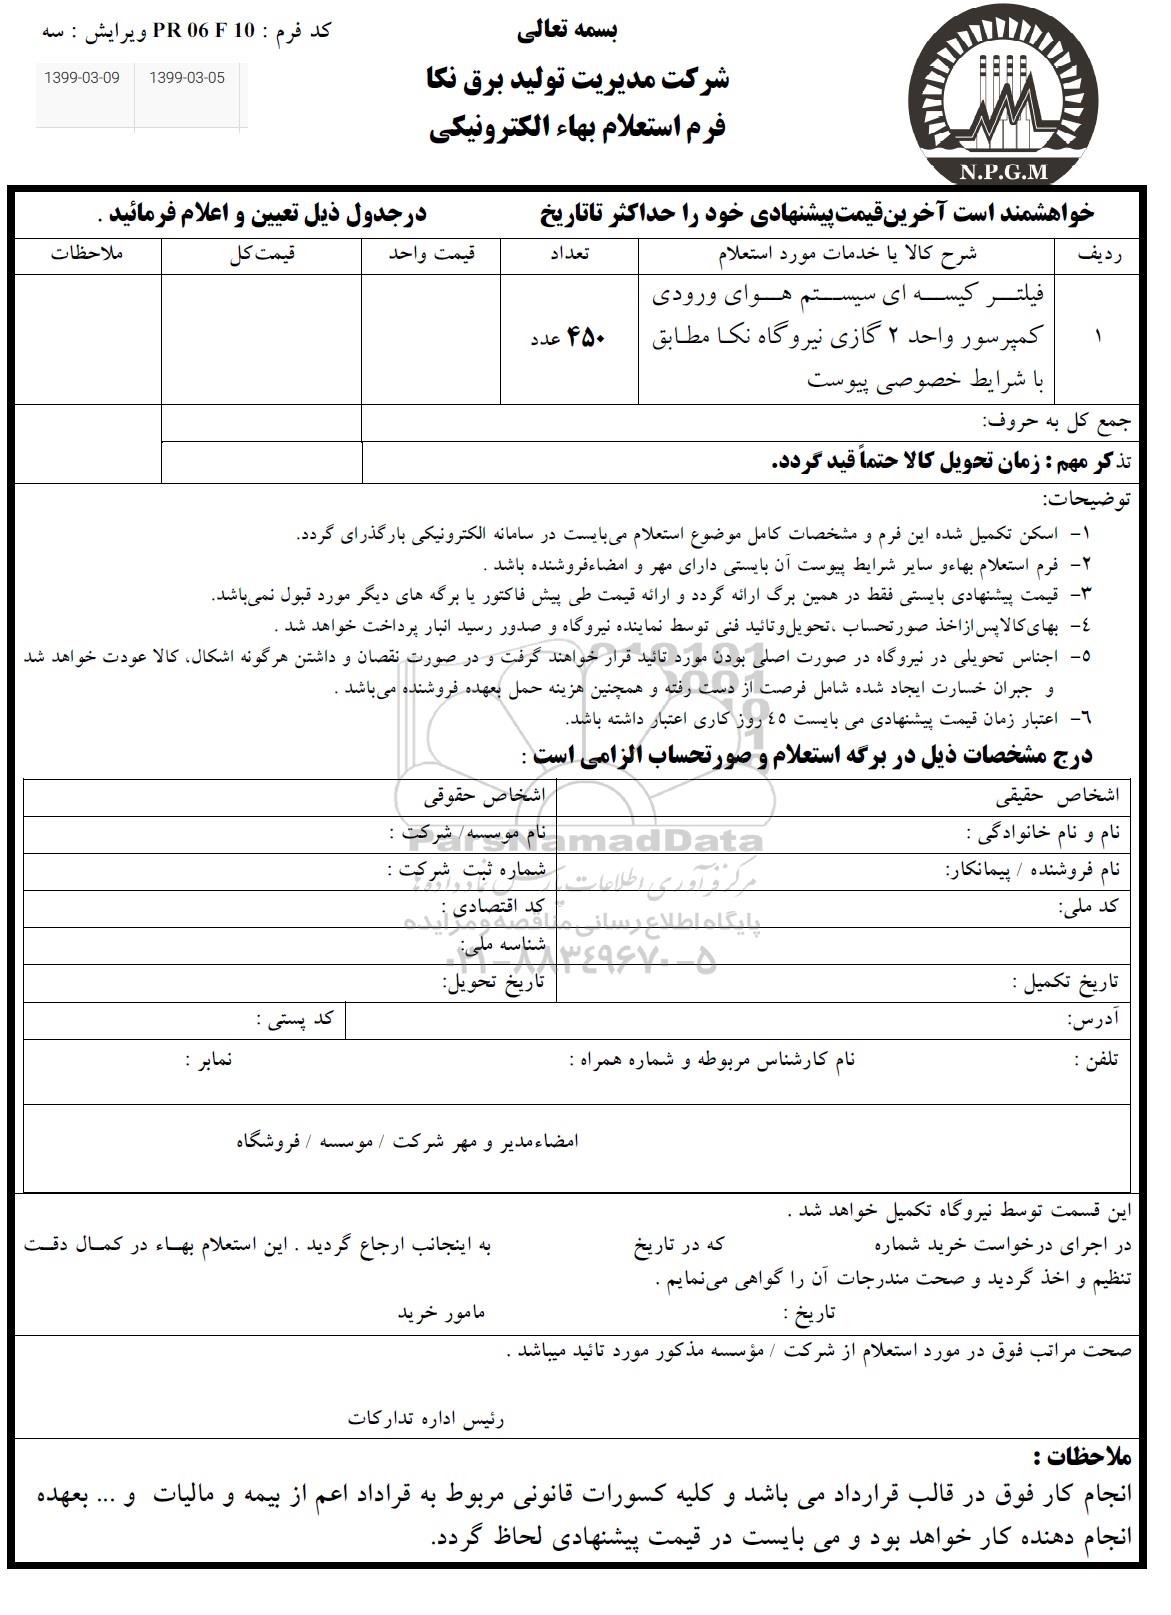 بسمه تعالی
کد فرم : PR 06 F 10 ویرایش : سه
شرکت مدیریت تولید برق نکا
1399-03-09 1399-03-05
فرم استعلام بهاء الکترونیکی
N.P.G.M
خواهشمند است آخرین‌قیمت‌پیشنهادی خود را حداکثر تاتاریخ درجدول ذیل تعیین و اعلام فرمائید .
ردیف شرح کالا یا خدمات مورد استعلام تعداد قیمت واحد قیمت‌کل ملاحظات
فیلتر کیسه ای سیستم هوای ورودی
۱ کمپرسور واحد ۲ گازی نیروگاه نکا مطابق ۴۵۰ عدد
با شرایط خصوصی پیوست
جمع کل به حروف:
تذکر مهم : زمان تحویل کالا حتماً قید گردد.
توضیحات:
۱- اسکن تکمیل شده این فرم و مشخصات کامل موضوع استعلام می‌بایست در سامانه الکترونیکی بارگذرای گردد.
۲- فرم استعلام بهاءو سایر شرایط پیوست آن بایستی دارای مهر و امضاءفروشنده باشد .
۳- قیمت پیشنهادی بایستی فقط در همین برگ ارائه گردد و ارائه قیمت طی پیش فاکتور یا برگه های دیگر مورد قبول نمی‌باشد.
٤- بهای‌کالاپس‌ازاخذ صورتحساب ،تحویل‌وتائید فنی توسط نماینده نیروگاه و صدور رسید انبار پرداخت خواهد شد .
۵- اجناس تحویلی در نیروگاه در صورت اصلی بودن مورد تائید قرار خواهند گرفت و در صورت نقصان و داشتن هرگونه اشکال، کالا عودت خواهد شد
و جبران خسارت ایجاد شده شامل فرصت از دست رفته و همچنین هزینه حمل بعهده فروشنده می‌باشد .
۶- اعتبار زمان قیمت پیشنهادی می بایست ٤۵ روز کاری اعتبار داشته باشد.
درج مشخصات ذیل در برگه استعلام و صورتحساب الزامی است :
اشخاص حقیقی اشخاص حقوقی
نام و نام خانوادگی : نام موسسه/ شرکت :
ParsNamadData
نام فروشنده / پیمانکار: شماره ثبت شرکت :
مرکز فرآوری اطلاعات پارس نماد داده ها
کد ملی: کد اقتصادی :
پایگاه اطلاع رسانی مناقصه و مزایده
شناسه ملی:
۰۲۱-۸۸۳٤۹۶۷۰-۵
تاریخ تکمیل : تاریخ تحویل:
آدرس: کد پستی :
تلفن : نام کارشناس مربوطه و شماره همراه : نمابر :
امضاءمدیر و مهر شرکت / موسسه / فروشگاه
این قسمت توسط نیروگاه تکمیل خواهد شد .
در اجرای درخواست خرید شماره که در تاریخ به اینجانب ارجاع گردید . این استعلام بهاء در کمال دقت
تنظیم و اخذ گردید و صحت مندرجات آن را گواهی می‌نمایم .
تاریخ : مامور خرید
صحت مراتب فوق در مورد استعلام از شرکت / مؤسسه مذکور مورد تائید میباشد .
رئیس اداره تدارکات
ملاحظات :
انجام کار فوق در قالب قرارداد می باشد و کلیه کسورات قانونی مربوط به قراداد اعم از بیمه و مالیات و ... بعهده
انجام دهنده کار خواهد بود و می بایست در قیمت پیشنهادی لحاظ گردد.